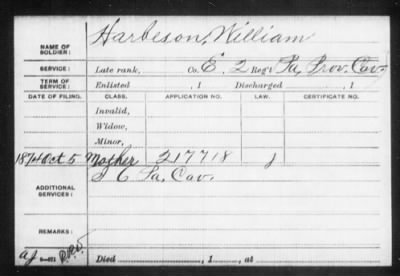 NAME OF SOLDIER: Harbeson, William
SERVICE: Late rank, Co. E. 2 Reg't Pa. Prov. Cav.
TERM OF SERVICE: Enlisted , 1 Discharged , 1
DATE OF FILING. CLASS. APPLICATION NO. LAW. CERTIFICATE NO.
Invalid,
Widow,
Minor,
1874 Oct 5 Mother 217718
ADDITIONAL SERVICES: I 6 Pa. Cav.
REMARKS:
Died , 1 , at